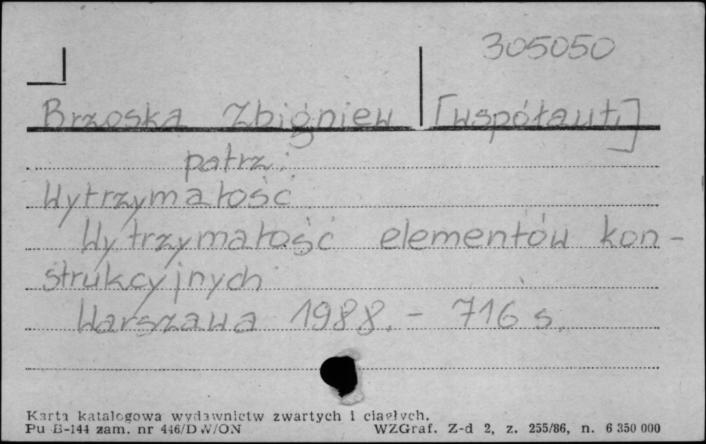 305050
Brzoska Zbigniew [współaut.]
patrz:
Wytrzymałość
Wytrzymałość elementów kon-
strukcyjnych
Warszawa 1988. - 716 s.
Karta katalogowa wydawnictw zwartych i ciągłych.
Pu B-144 zam. nr 446/DW/ON WZGraf. Z-d 2, z. 255/86, n. 6 350 000